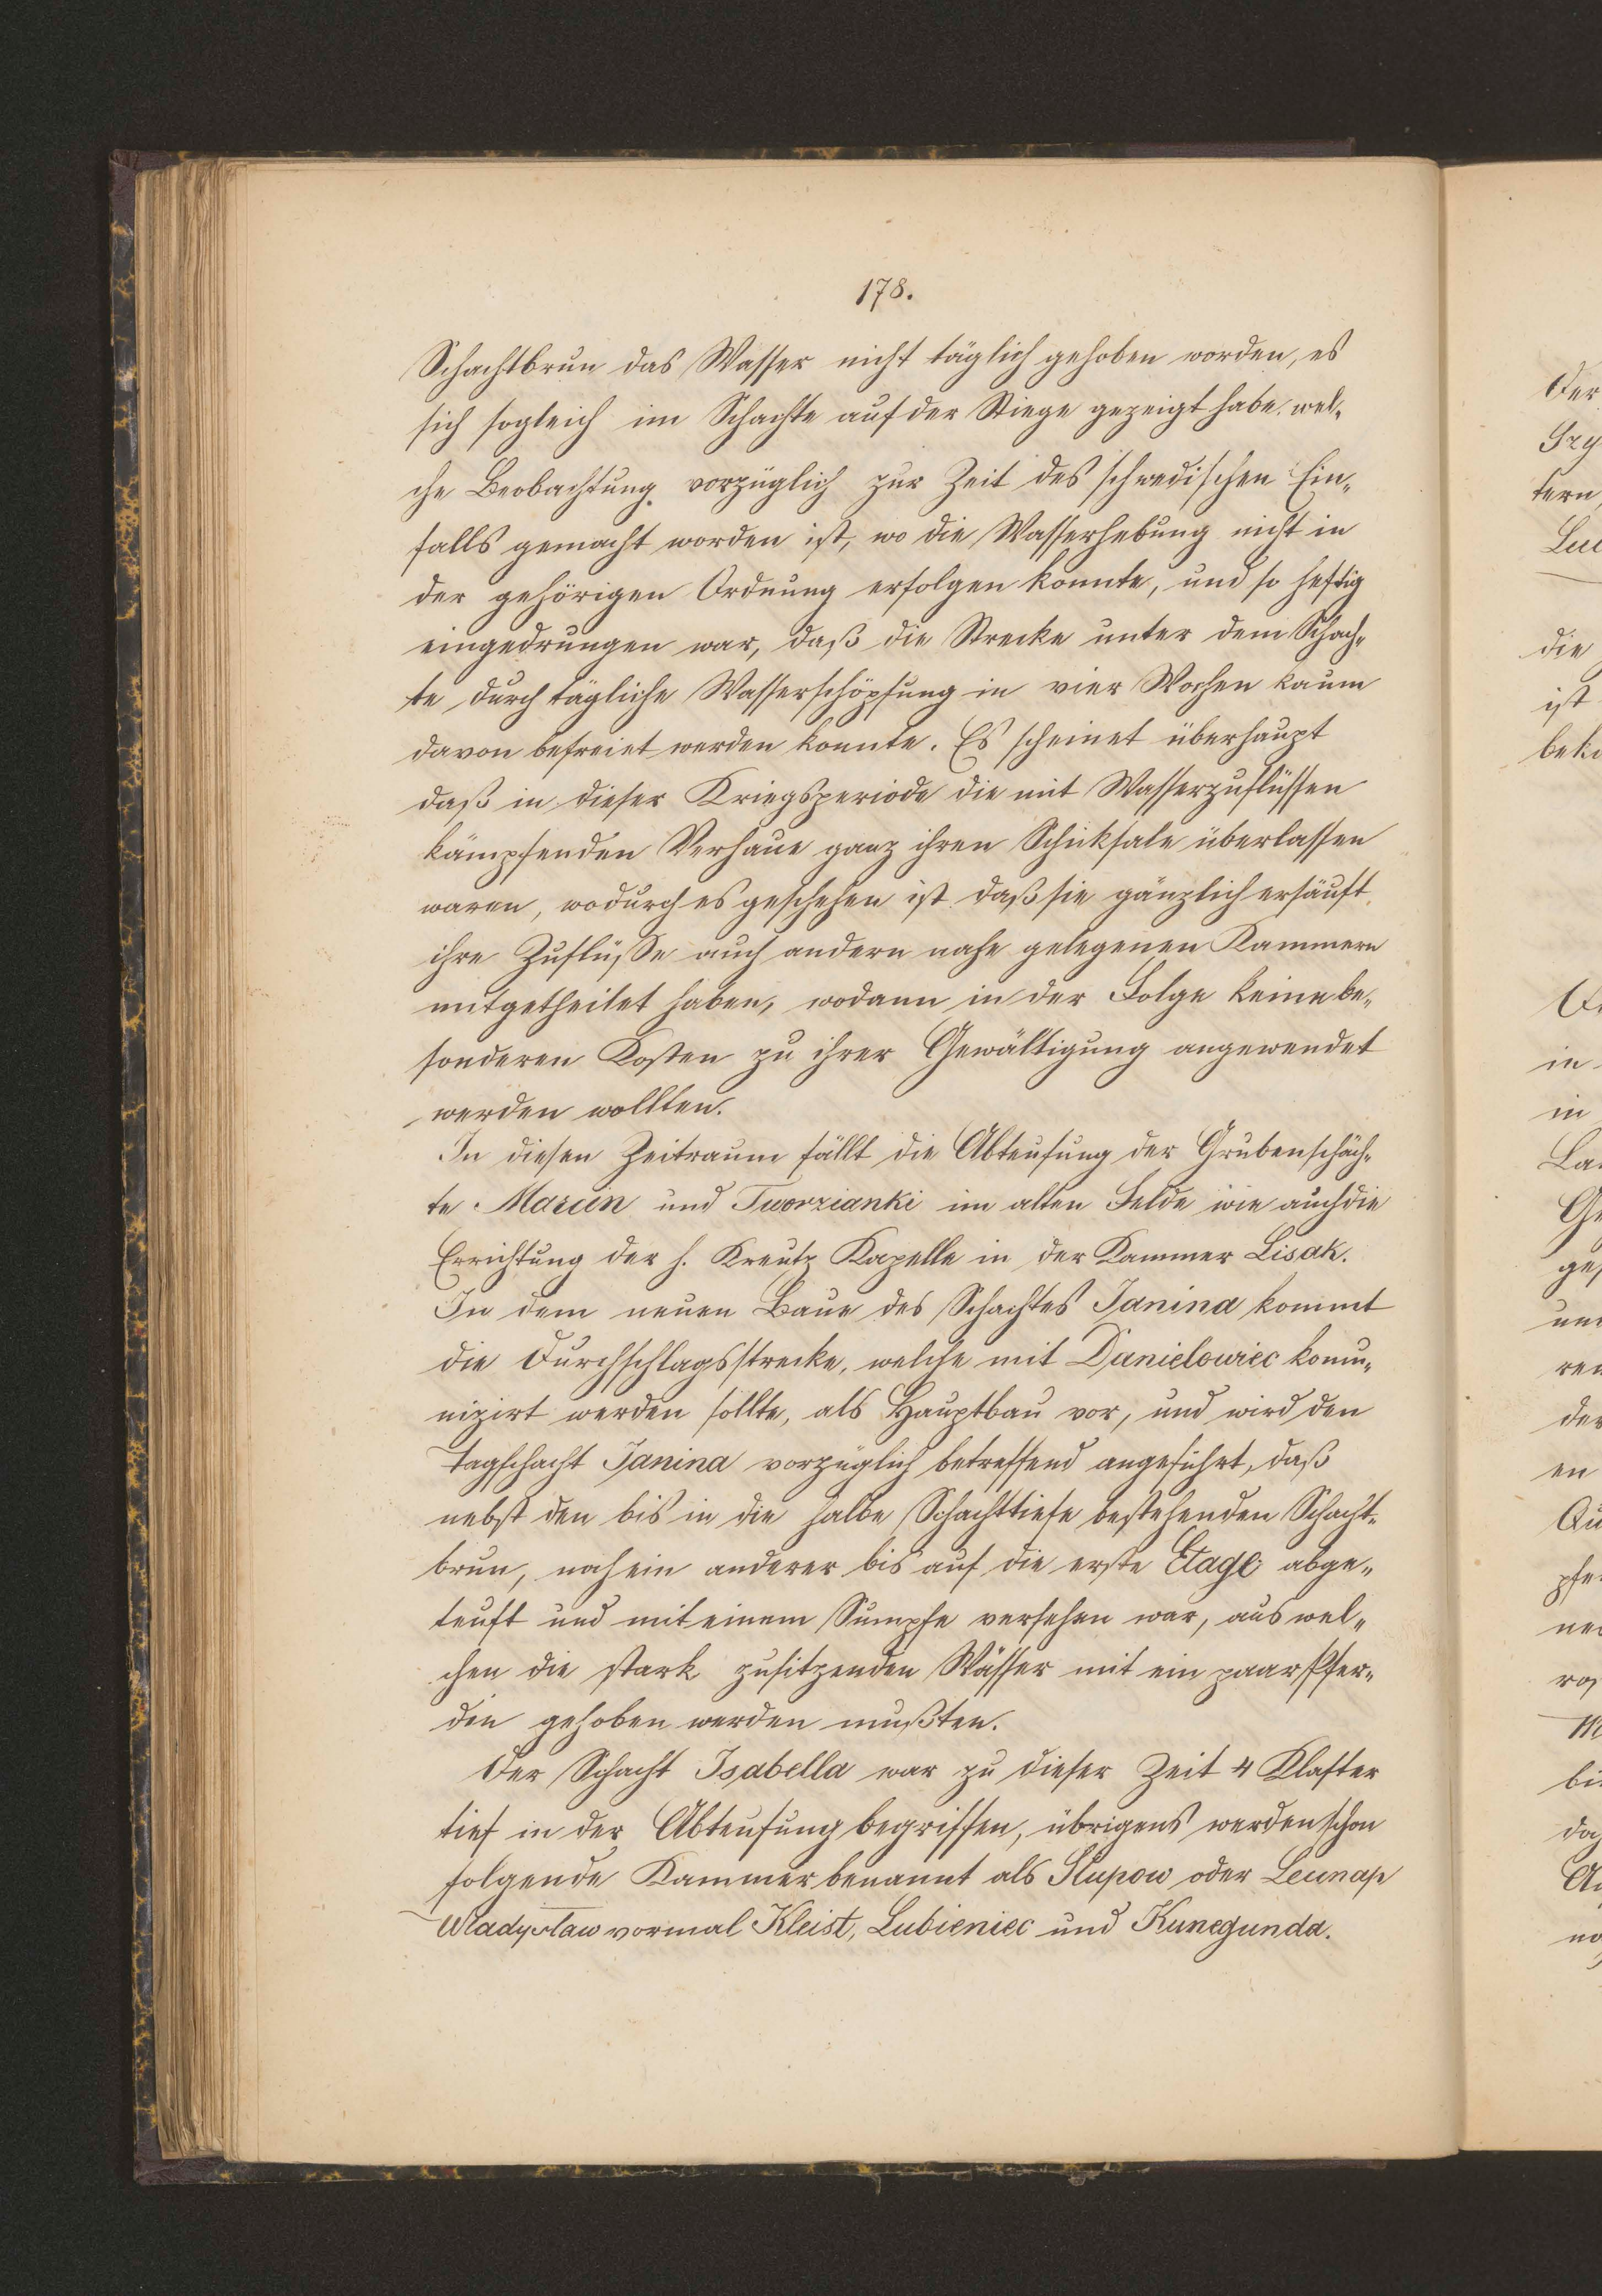 178.
Schachtbrun das Wasser nicht täglich gehoben worden, es
sich sogleich im Schachte auf der Stiege gezeigt habe, wel„
che Beobachtung vorzüglich zur Zeit des schwedischen Ein„
falls gemacht worden ist, wo die Wasserhebung nicht in
der gehörigen Ordnung erfolgen konnte, und so heftig
eingedrungen war, daß die Strecke unter dem Schach„
te durch tägliche Wasserschöpfung in vier Wochen kaum
davon befreiet werden konnte. Es scheinet überhaupt
daß in dieser Kriegsperiode die mit Wasserzuflüssen
kämpfenden Verhaue ganz ihren Schicksale überlassen
waren, wodurch es geschehen ist daß sie gänzlich ersäuft,
ihre Zuflüsse auch andern nahe gelegenen Kammern
mitgetheilet haben, wodann in der Folge keine be„
sonderen Kosten zu ihrer Gewältigung angewendet
werden wollten.
In diesen Zeitraum fällt die Abteufung der Grubenschäch„
te Marcin und Tworzianki im alten Felde wie auch die
Errichtung der h. Kreutz Kapelle in der Kammer Lisak.
In dem neuen Baue des Schachtes Janina kommt
die Durchschlagsstrecke, welche mit Danielowiec komu„
nizirt werden sollte, als Hauptbau vor, und wird den
Tagschacht Janina vorzüglich betreffend angeführt, daß
nebst den bis in die halbe Schachttiefe bestehenden Schacht„
brun, noch ein anderer bis auf die erste Etage abge„
teuft und mit einem Sumpfe versehen war, aus wel„
chen die stark zusitzenden Wässer mit ein paar Pfer„
den gehoben werden mußten.
Der Schacht Isabella war zu dieser Zeit 4 Klafter
tief in der Abteufung begriffen, übrigens werden schon
folgende Kammer benannt als Słupow oder Leunap
Władysław vormal Kleist, Lubieniec und Kunegunda.